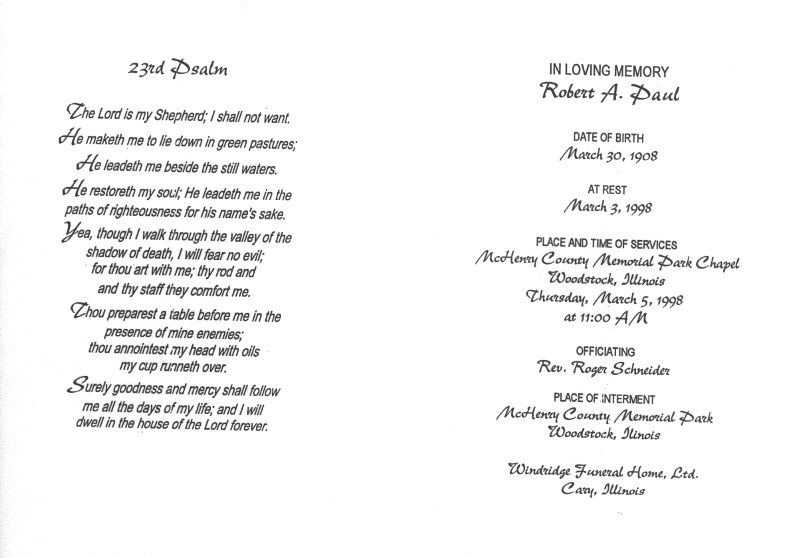 23rd Psalm
The Lord is my Shepherd; I shall not want.
He maketh me to lie down in green pastures;
He leadeth me beside the still waters.
He restoreth my soul; He leadeth me in the
paths of righteousness for his name's sake.
Yea, though I walk through the valley of the
shadow of death, I will fear no evil;
for thou art with me; thy rod and
and thy staff they comfort me.
Thou preparest a table before me in the
presence of mine enemies;
thou annointest my head with oils
my cup runneth over.
Surely goodness and mercy shall follow
me all the days of my life; and I will
dwell in the house of the Lord forever.
IN LOVING MEMORY
Robert A. Paul
DATE OF BIRTH
March 30, 1908
AT REST
March 3, 1998
PLACE AND TIME OF SERVICES
McHenry County Memorial Park Chapel
Woodstock, Illinois
Thursday, March 5, 1998
at 11:00 AM
OFFICIATING
Rev. Roger Schneider
PLACE OF INTERMENT
McHenry County Memorial Park
Woodstock, Illinois
Windridge Funeral Home, Ltd.
Cary, Illinois